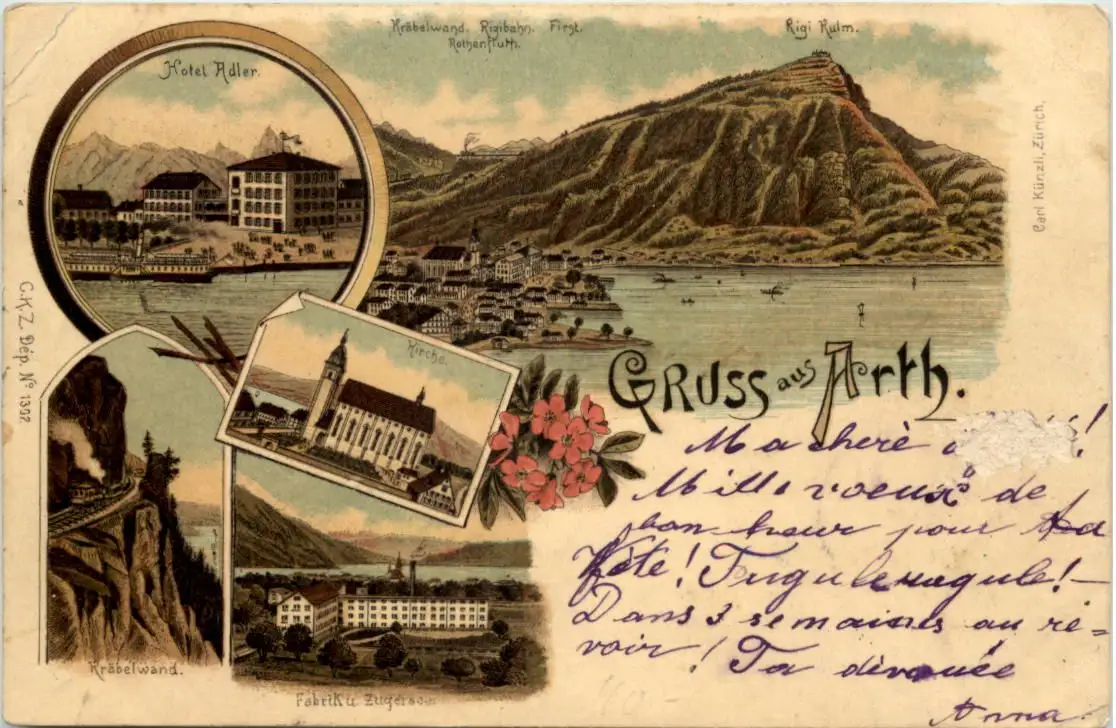 Kräbelwand. Rigibahn. First.
Rothenfluth.
Rigi Kulm.
Hotel Adler.
Carl Künzli, Zürich.
C.K.Z. Dép. No 1397.
Kirche.
Gruss aus Arth.
Kräbelwand.
Fabrik u. Zugersee.
Ma cherè
Mille voeux de
bon heur pour ta
fête!
Dans 3 semaines au re-
voir! Ta dévouée
Anna.